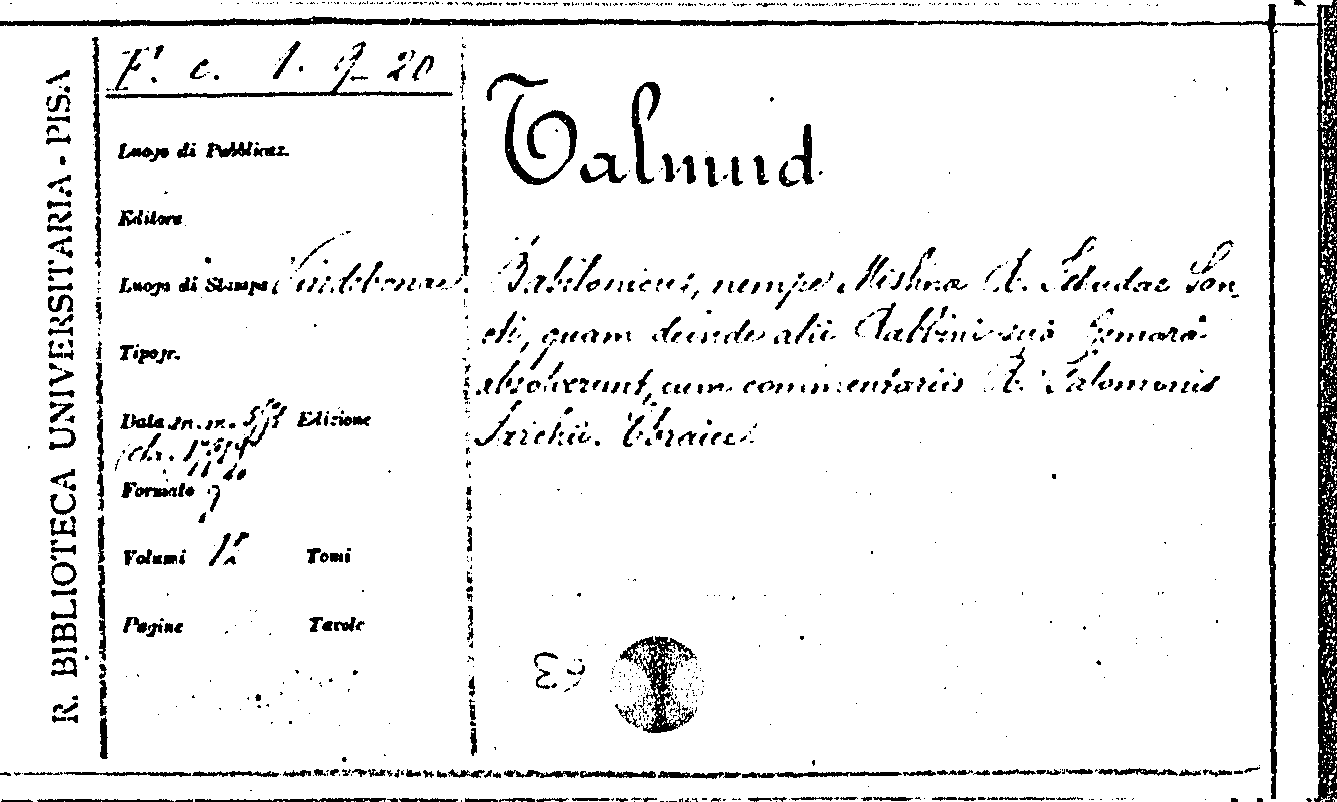 R. BIBLIOTECA UNIVERSITARIA - PISA
F. c. 1. 9-20
Luogo di Pubblicaz.
Editore
Luogo di Stampa Vindobonae.
Tipogr.
Data Edizione
Formato
Volumi 12 Tomi
Pagine Tavole
Talmud
Babilonicus, nempe Mishna R. Iehudae San
cti, quam deinde alii Rabbini sua Gemara
absolverunt, cum commentariis R. Salomonis
Jarchii. Ebraice.